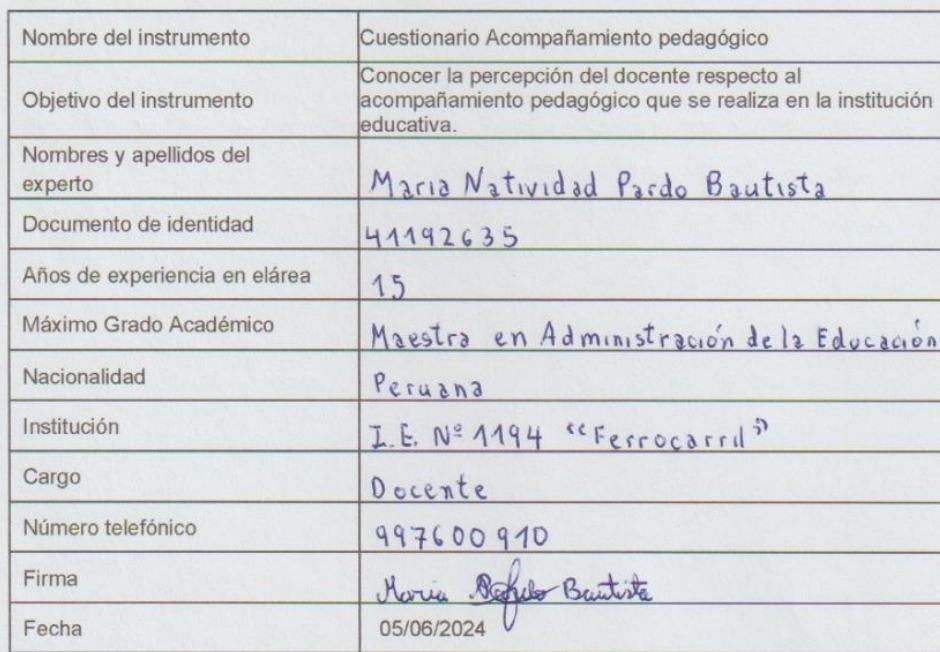 Nombre del instrumento
Cuestionario Acompañamiento pedagógico
Objetivo del instrumento
Conocer la percepción del docente respecto al
acompañamiento pedagógico que se realiza en la institución
educativa.
Nombres y apellidos del
experto
Maria Natividad Pardo Bautista
Documento de identidad
41192635
Años de experiencia en elárea
15
Máximo Grado Académico
Maestra en Administración de la Educación
Nacionalidad
Peruana
Institución
I.E. Nº 1194 “Ferrocarril”
Cargo
Docente
Número telefónico
997600910
Firma
Maria Bautista
Fecha
05/06/2024